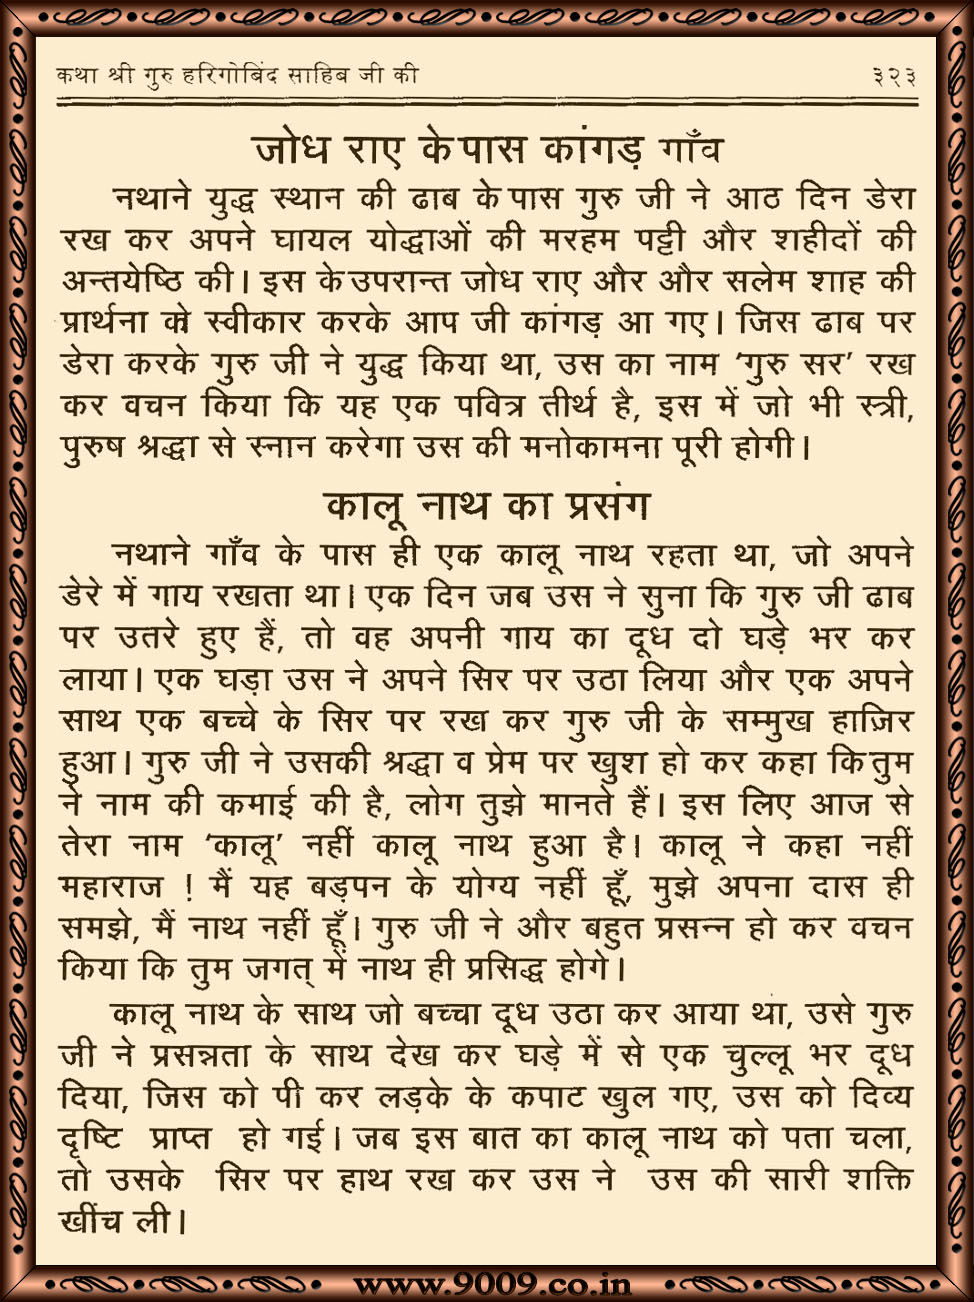 कथा श्री गुरु हरिगोबिंद साहिब जी की ३२३
जोध राए के पास कांगड़ गाँव
नथाने युद्ध स्थान की ढाब के पास गुरु जी ने आठ दिन डेरा
रख कर अपने घायल योद्धाओं की मरहम पट्टी और शहीदों की
अन्तयेष्ठि की। इस के उपरान्त जोध राए और और सलेम शाह की
प्रार्थना को स्वीकार करके आप जी कांगड़ आ गए। जिस ढाब पर
डेरा करके गुरु जी ने युद्ध किया था, उस का नाम ‘गुरु सर’ रख
कर वचन किया कि यह एक पवित्र तीर्थ है, इस में जो भी स्त्री,
पुरुष श्रद्धा से स्नान करेगा उस की मनोकामना पूरी होगी।
कालू नाथ का प्रसंग
नथाने गाँव के पास ही एक कालू नाथ रहता था, जो अपने
डेरे में गाय रखता था। एक दिन जब उस ने सुना कि गुरु जी ढाब
पर उतरे हुए हैं, तो वह अपनी गाय का दूध दो घड़े भर कर
लाया। एक घड़ा उस ने अपने सिर पर उठा लिया और एक अपने
साथ एक बच्चे के सिर पर रख कर गुरु जी के सम्मुख हाज़िर
हुआ। गुरु जी ने उसकी श्रद्धा व प्रेम पर खुश हो कर कहा कि तुम
ने नाम की कमाई की है, लोग तुझे मानते हैं। इस लिए आज से
तेरा नाम ‘कालू’ नहीं कालू नाथ हुआ है। कालू ने कहा नहीं
महाराज ! मैं यह बड़पन के योग्य नहीं हूँ, मुझे अपना दास ही
समझे, मैं नाथ नहीं हूँ। गुरु जी ने और बहुत प्रसन्न हो कर वचन
किया कि तुम जगत् में नाथ ही प्रसिद्ध होगे।
कालू नाथ के साथ जो बच्चा दूध उठा कर आया था, उसे गुरु
जी ने प्रसन्नता के साथ देख कर घड़े में से एक चुल्लू भर दूध
दिया, जिस को पी कर लड़के के कपाट खुल गए, उस को दिव्य
दृष्टि प्राप्त हो गई। जब इस बात का कालू नाथ को पता चला,
तो उसके सिर पर हाथ रख कर उस ने उस की सारी शक्ति
खींच ली।
www.9009.co.in